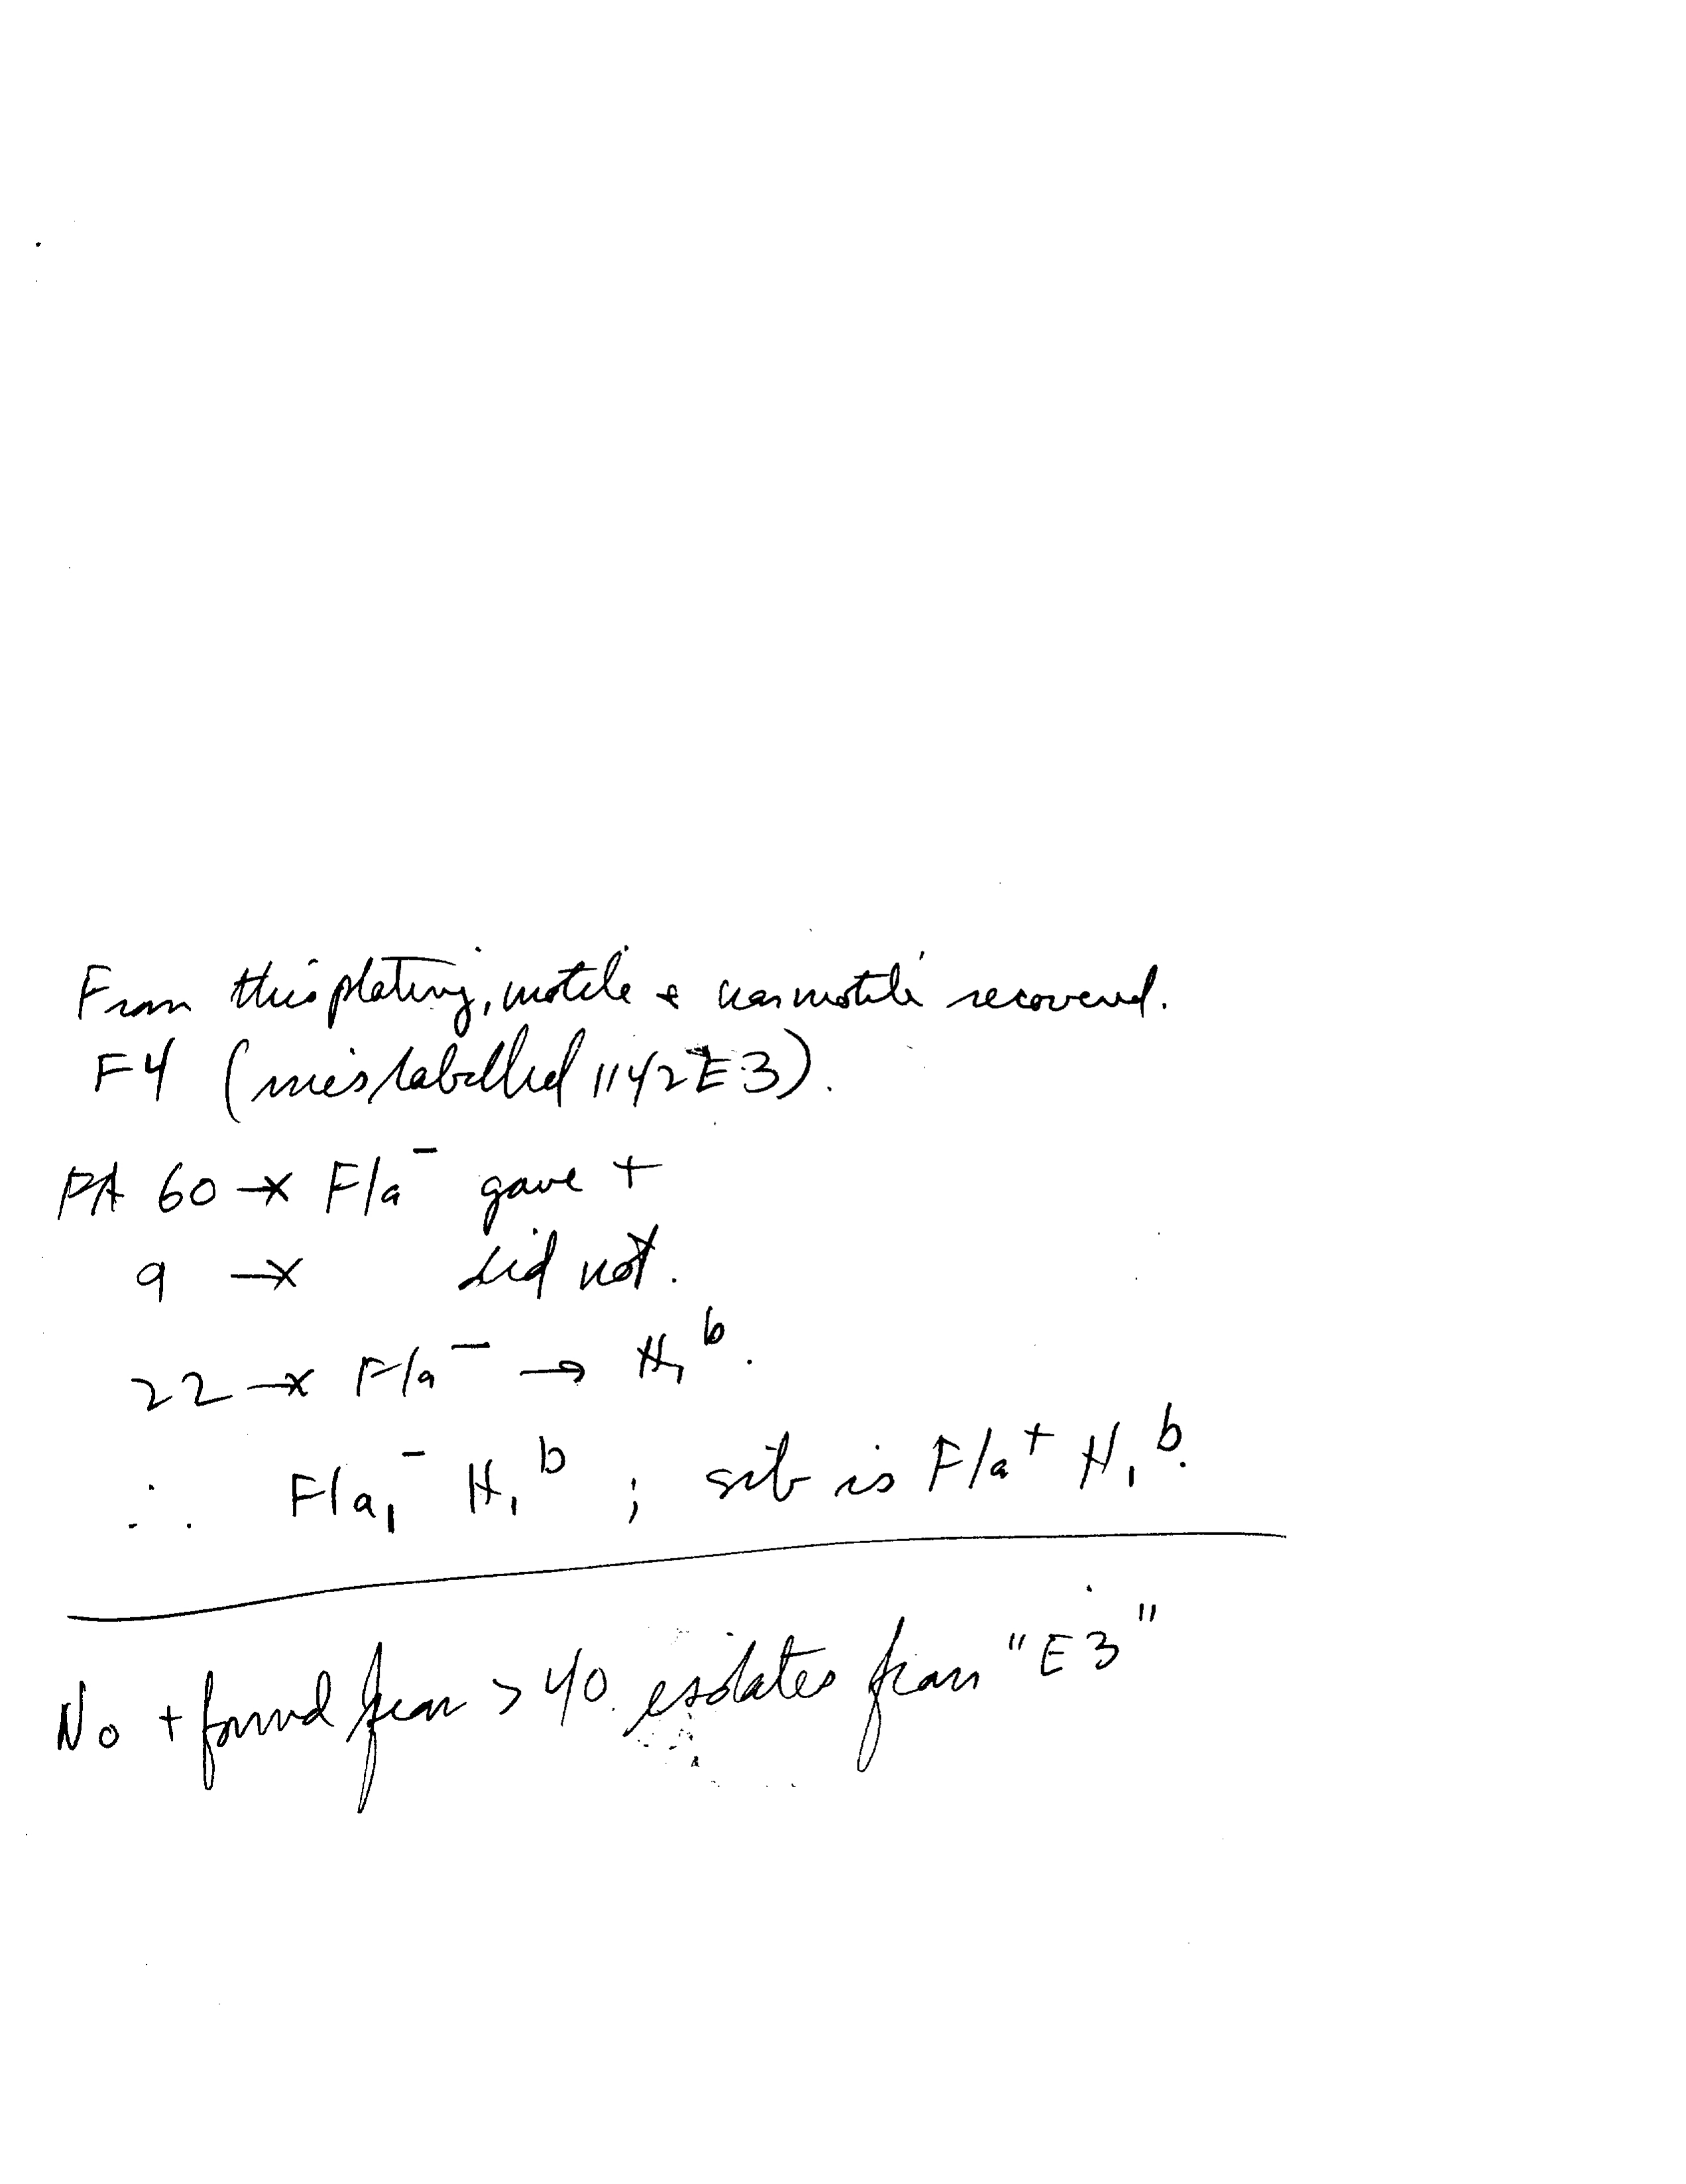 From this plating, motile & nonmotile recovered.
F4 (mislabelled 1142E3).
PA 60 —x Fla⁻ gave +
9 —x did not.
22 —x Fla⁻ → H₁ᵇ.
∴ Fla₁⁻ H₁ᵇ ; sib is Fla⁺ H₁ᵇ.
No + found from > 40 isolates from "E3"